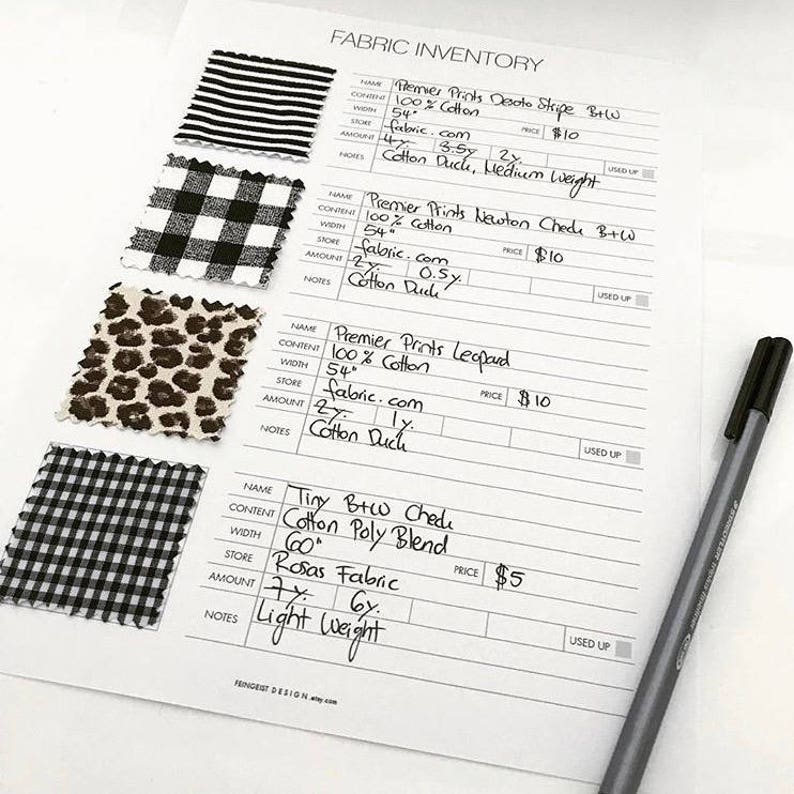 FABRIC INVENTORY
NAME Premier Prints Desoto Stripe B+W
CONTENT 100% Cotton
WIDTH 54"
STORE fabric.com PRICE $10
AMOUNT 4y. 3.5y 2y. USED UP
NOTES Cotton Duck, Medium Weight
NAME Premier Prints Newton Check B+W
CONTENT 100% Cotton
WIDTH 54"
STORE fabric.com PRICE $10
AMOUNT 2y. 0.5y. USED UP
NOTES Cotton Duck
NAME Premier Prints Leopard
CONTENT 100% Cotton
WIDTH 54"
STORE fabric.com PRICE $10
AMOUNT 2y. 1y. USED UP
NOTES Cotton Duck
NAME Tiny B+W Check
CONTENT Cotton Poly Blend
WIDTH 60"
STORE Rosas Fabric PRICE $5
AMOUNT 7y. 6y. USED UP
NOTES Light Weight
FEINGEIST DESIGN.etsy.com
STAEDTLER triplus fineliner